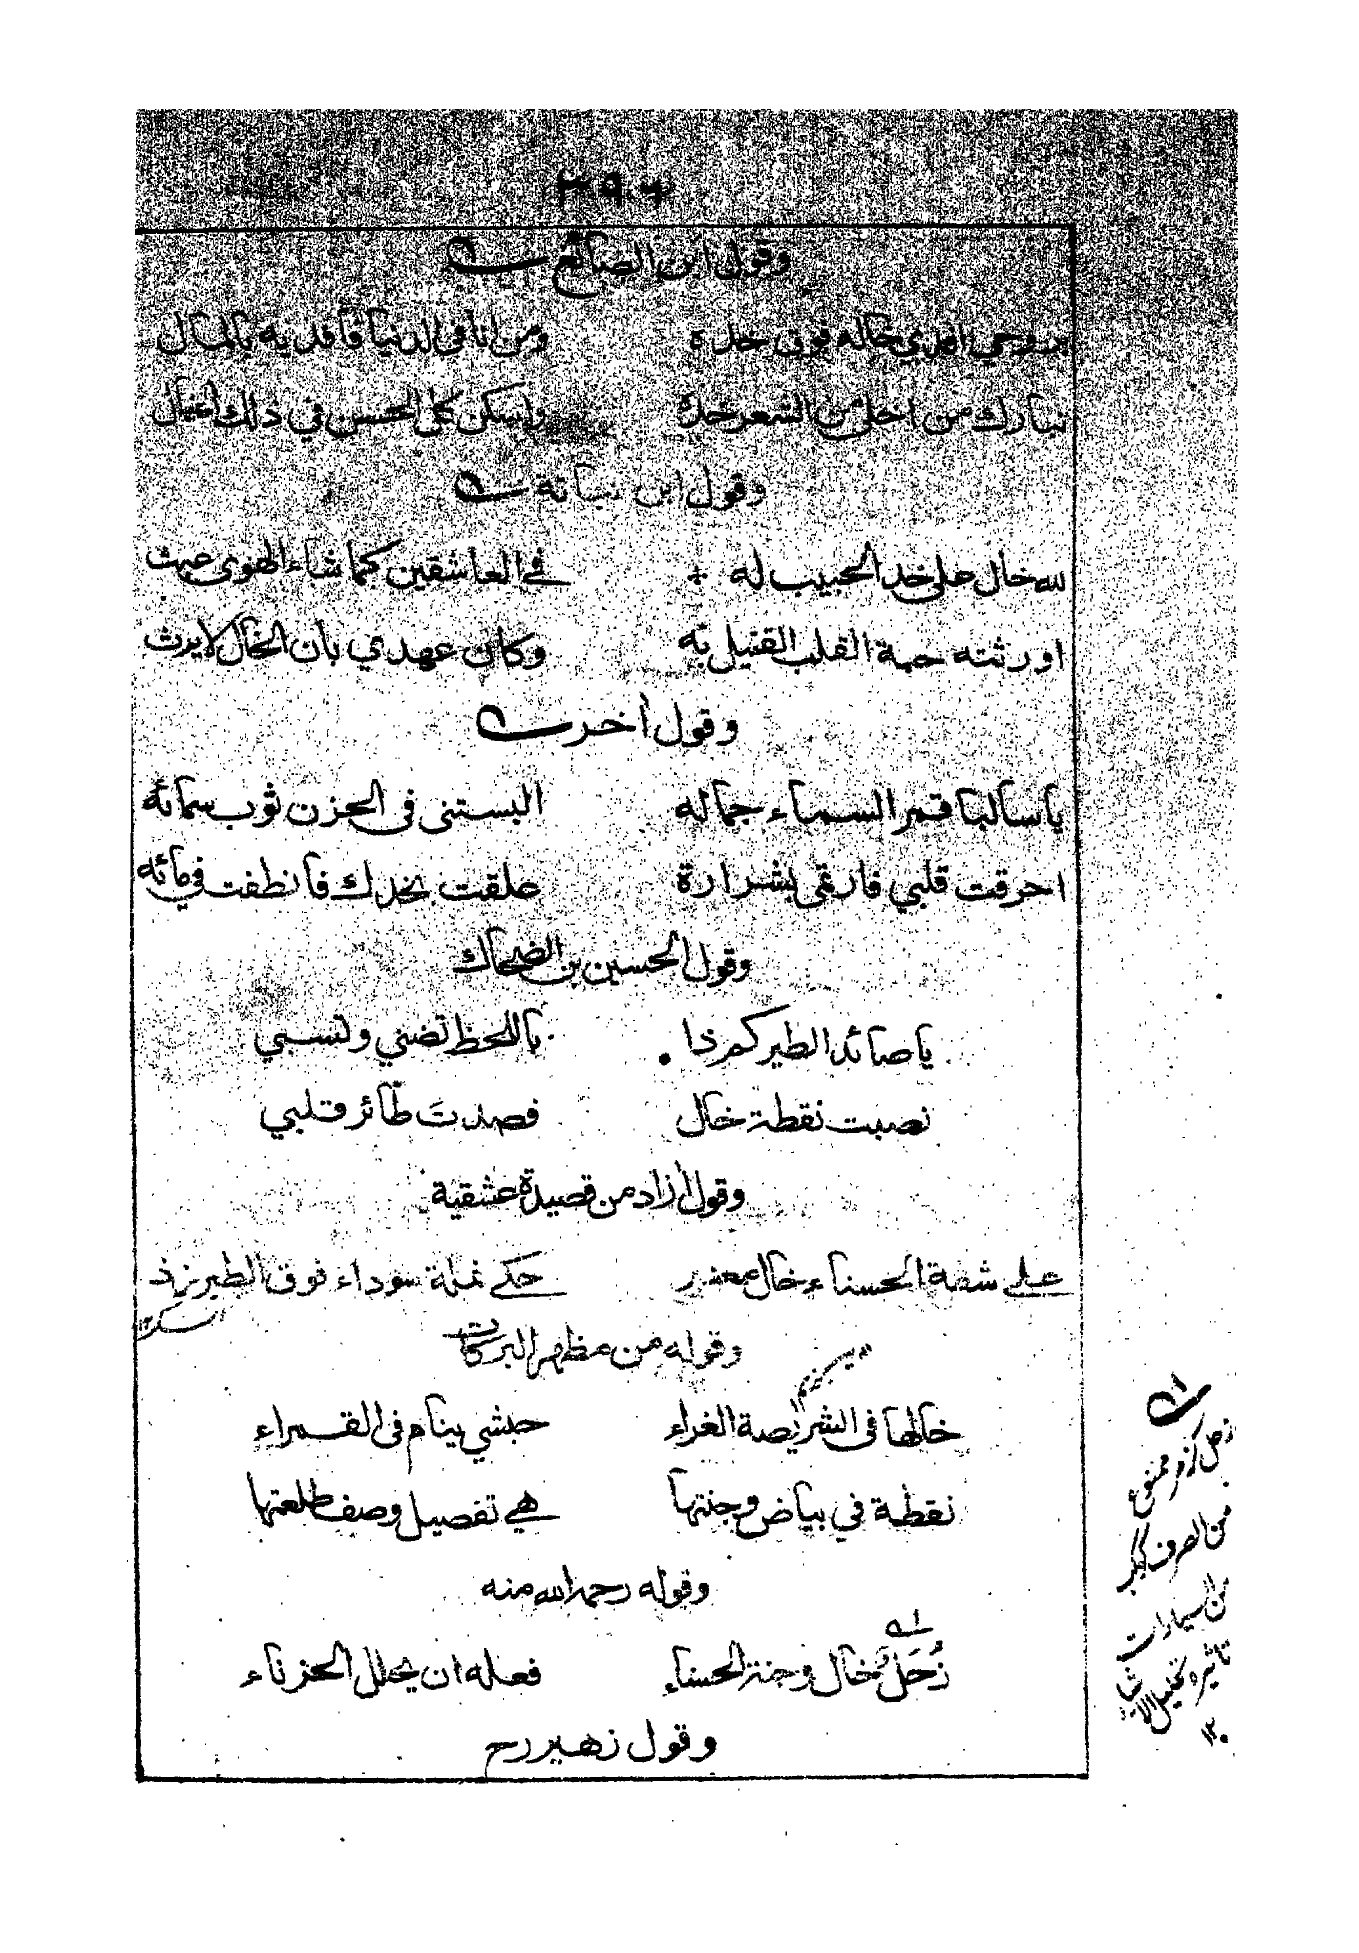 ٣٩٠
وقول ابن الصائغ
بروحي افدي خاله فوق خده ومن انا في الدنيا فافديه بالمال
تبارك من اخلى من الشعر خدك واسكن كل الحسن في ذلك الخال
وقول ابن نباته
لله خال على خد الحبيب له في العاشقين كما شاء الهوى عبث
اورثته حبة القلب القتيل به وكان عهدي بان الخال لايرث
وقول اخر
يا سالبا قمر السماء جماله البستني في الحزن ثوب سمائه
احرقت قلبي فارتمى بشرارة علقت بخدك فانطفت في مائه
وقول الحسين بن الضحاك
يا صائد الطير كم ذا باللحظ تضني وتسبي
نصبت نقطة خال فصدت طائر قلبي
وقول ازاد من قصيدة عشقية
على شفة الحسناء خال معنبر حكى نملة سوداء فوق الطبرزذ
وقوله من مظهر البركات
خالها في الشريصة الغراء حبشي ينام في القمراء
نقطة في بياض وجنتها هي تفصيل وصف طلعتها
وقوله رحمه الله منه
زُحَلٌ خال وجنة الحسناء فعله ان يحلل الحزناء
وقول زهير رح
من الطرف
من السيارات
تاثيره
١٢